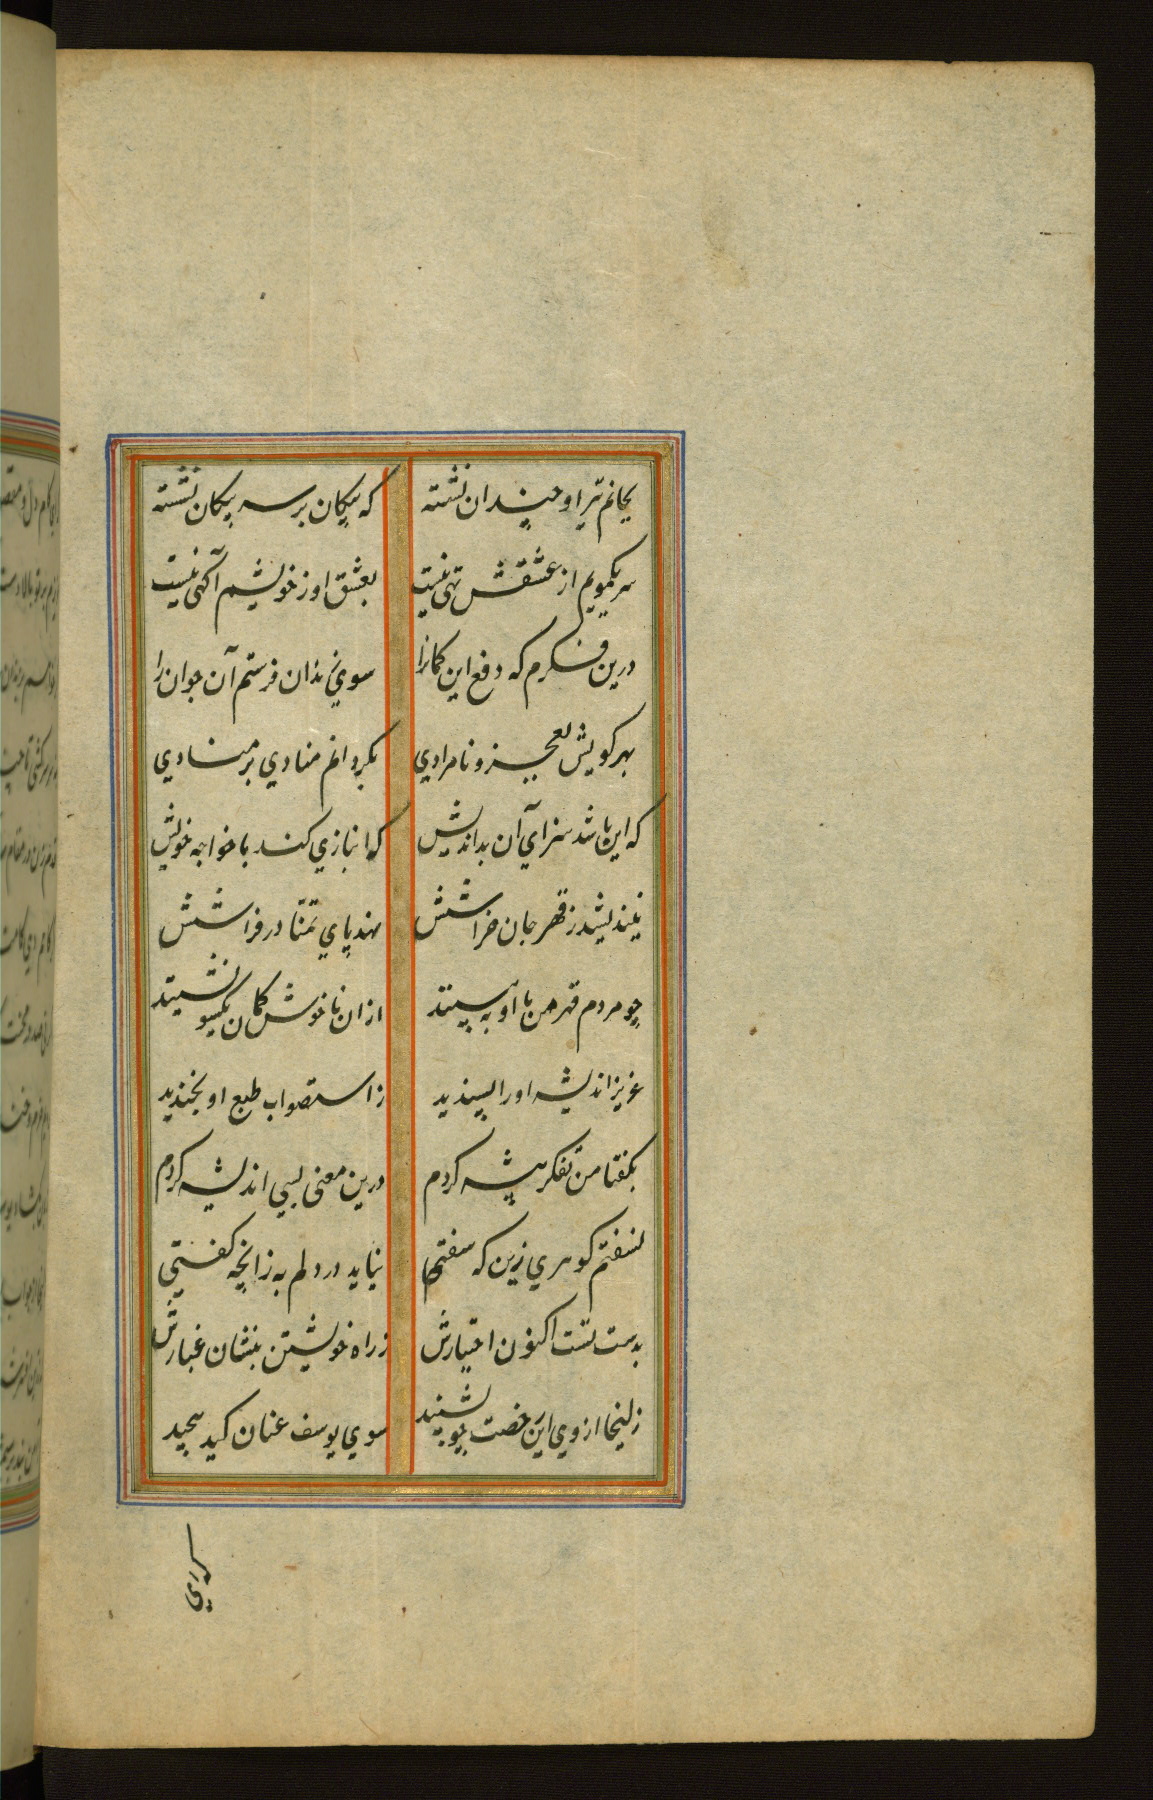 بجانم تیر او چندان نشسته
که پیکان بر سر پیکان نشسته
سر یکمویم از عشقش تهی نیست
بعشق او ز خویشم آگهی نیست
درین فکرم که دفع این گمانرا
سوی زندان فرستم آن جوان را
بهر کویش بعجز و نامرادی
بگردانم منادی بر منادی
که این باشد سزای آن بداندیش
که انبازی کند با خواجه خویش
نیندیشد ز قهر جان خراشش
نهد پای تمنا در فراشش
چو مردم قهر من با او به بینند
ازان ناخوش گمان یکسو نشینند
عزیز اندیشه او را پسندید
ز استصواب طبع او بخندید
بگفتا من تفکر پیشه کردم
درین معنی بسی اندیشه کردم
نسفتم گوهری زین که سفتی
نیاید در دلم به زانچه گفتی
بدست تست اکنون اختیارش
ز راه خویشتن بنشان غبارش
زلیخا از وی این رخصت چو بشنید
سوی یوسف عنان کید پیچید
که ای